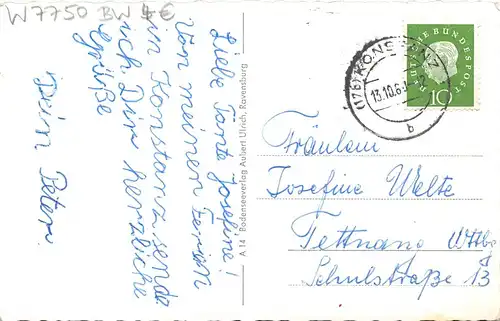 W7750 BW 4€
Liebe Tante Josefine!
Von meinen Ferien
in Konstanz sende
ich Dir herzliche
Grüße
Dein Peter.
A 14 Bodenseeverlag Aubert Ulrich, Ravensburg
(17b) KONSTANZ
13.10.61
b
DEUTSCHE BUNDESPOST
10
Fräulein
Josefine Welte
Tettnang Wttbg
Schulstraße 13